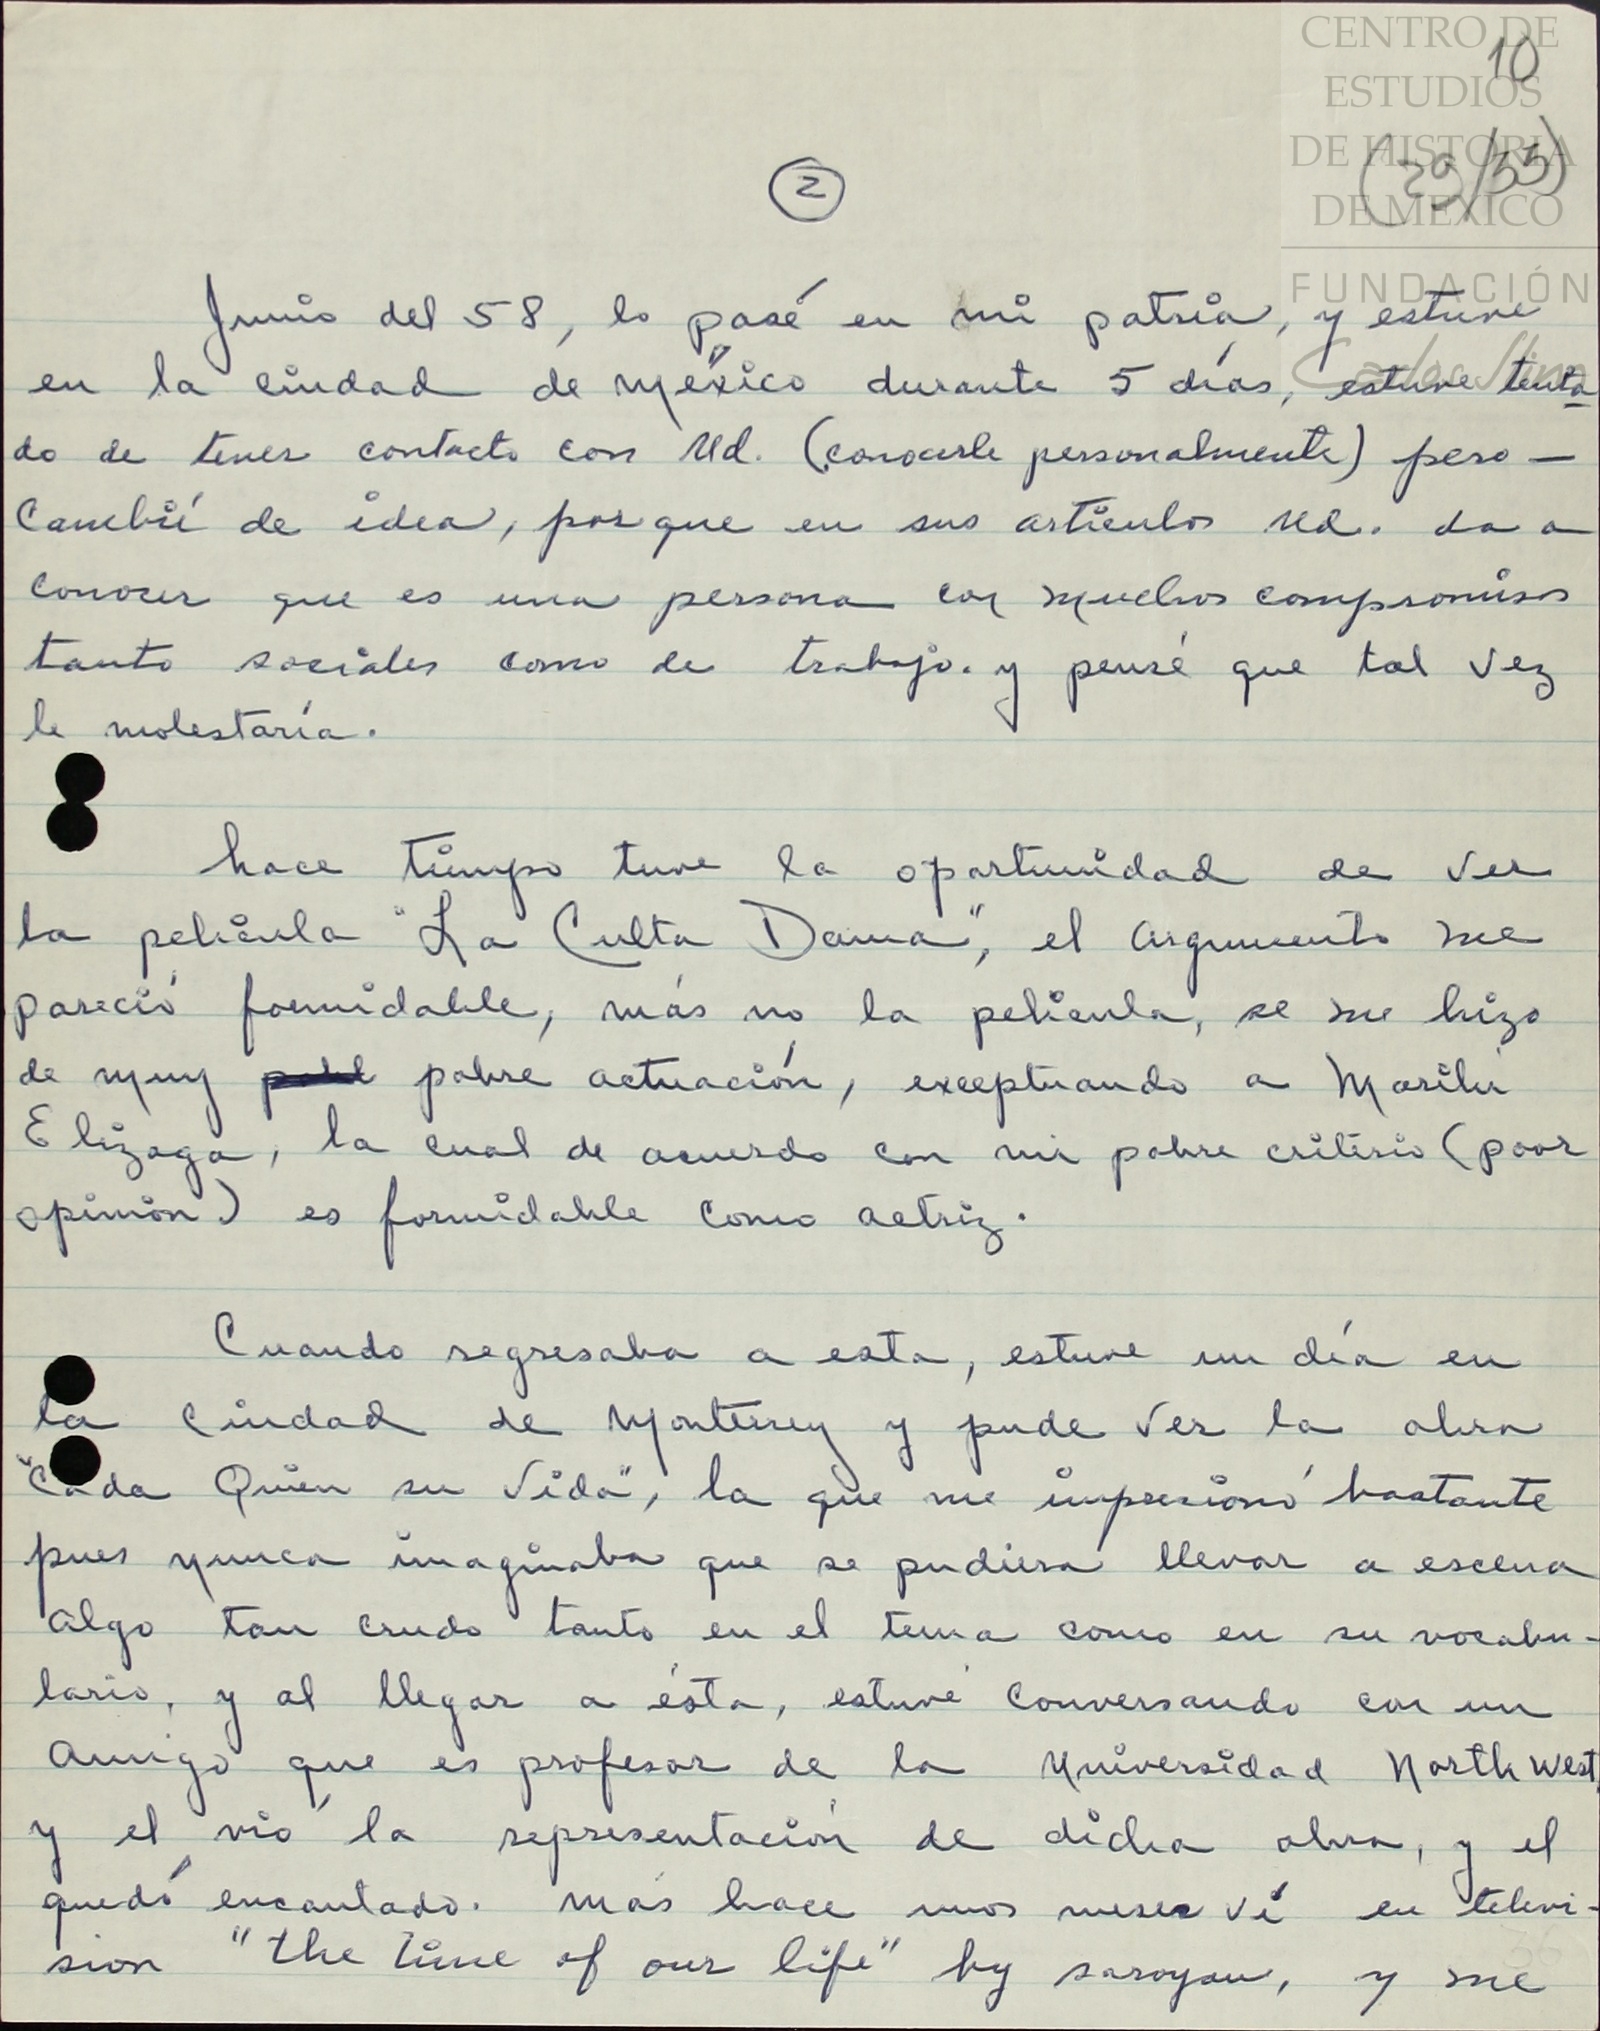 CENTRO DE
ESTUDIOS
DE HISTORIA
DE MEXICO
FUNDACIÓN
Carlos Slim
10
(29/35)
2
Junio del 58, lo pasé en mi patria, y estuve
en la ciudad de México durante 5 días, estuve tenta
do de tener contacto con Ud. (conocerle personalmente) pero —
Cambié de idea, porque en sus artículos Ud. da a
conocer que es una persona con muchos compromisos
tanto sociales como de trabajo. y pensé que tal vez
le molestaría.
hace tiempo tuve la oportunidad de ver
la película "La Culta Dama", el argumento me
pareció formidable, más no la película, se me hizo
de muy pobre actuación, exceptuando a Marilú
Elizaga, la cual de acuerdo con mi pobre criterio (poor
opinión) es formidable como actriz.
Cuando regresaba a esta, estuve un día en
la ciudad de Monterrey y pude ver la obra
"Cada Quien su Vida", la que me impresionó bastante
pues nunca imaginaba que se pudiera llevar a escena
algo tan crudo tanto en el tema como en su vocabu-
lario, y al llegar a ésta, estuve conversando con un
amigo que es profesor de la Universidad North West,
y el vió la representación de dicha obra, y el
quedó encantado. Más hace unos meses ví en televi-
sion "the time of our life" by saroyan, y me